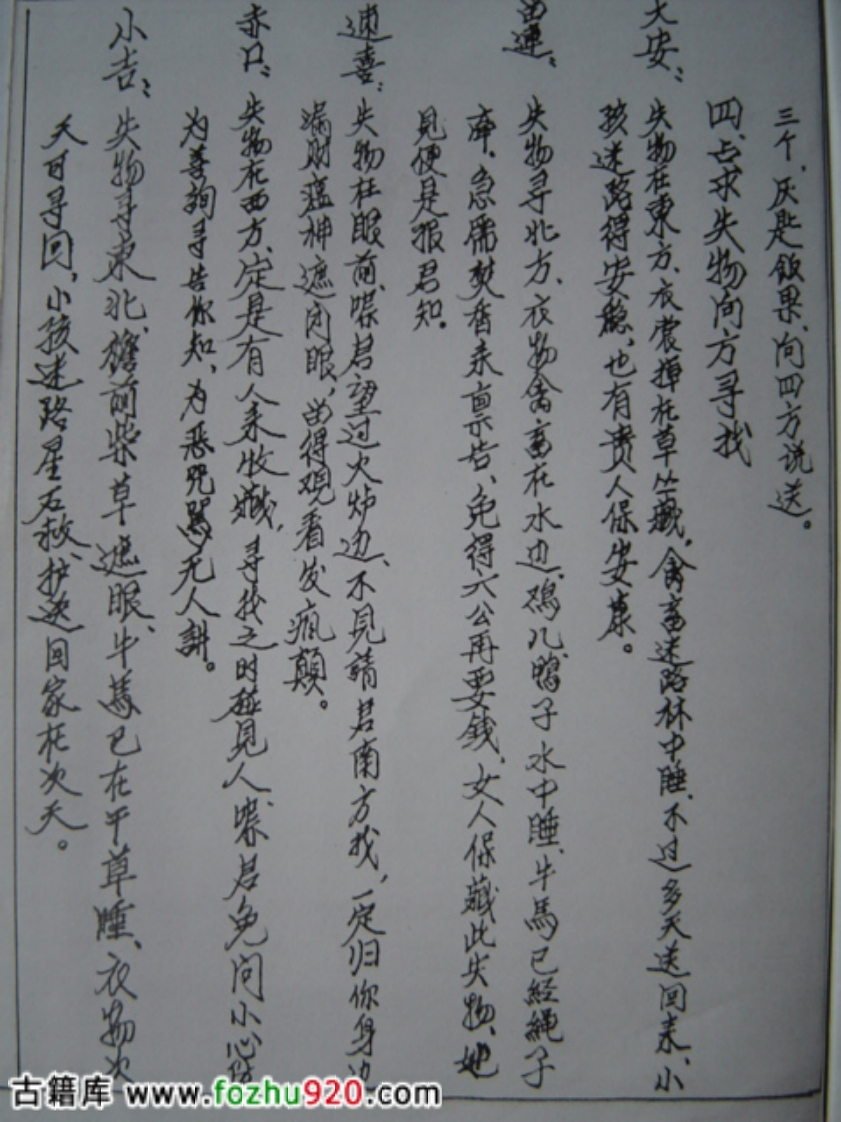 三个,灰匙饭果,向四方说送。
四、占求失物向方寻找
大安:失物在東方、衣裳掉在草丛藏,禽畜迷路林中睡、不过多天送回来、小
孩迷路得安稳、也有贵人保安康。
留連:失物寻北方、衣物禽畜在水边、鸡儿鴨子水中睡、牛馬已经繩子
牵,急需焚香来禀告、免得六公再要钱、女人保藏此失物、她
见便是报君知。
速喜:失物在眼前、君望过火炉边、不见請君南方找,一定归你身边
漏财瘟神遮闭眼,留得观看发疯颠。
赤口:失物在西方、定是有人来收藏,寻找之时碰见人、君免问小心
为善詢寻告你知、为恶咒駡无人訓。
小吉:失物寻東北、檐前柴草遮眼、牛馬已在干草睡、衣物次
天可寻回,小孩迷路星君救、护送回家在次天。
古籍库 www.fozhu920.com